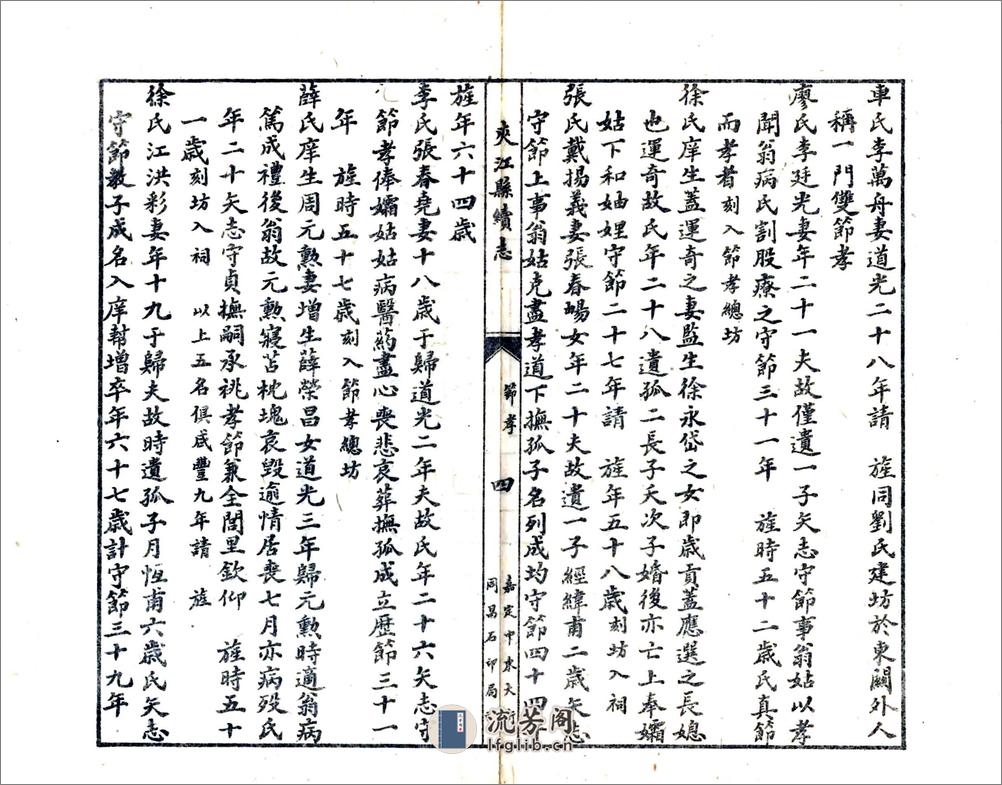 車氏李萬舟妻道光二十八年請　旌同劉氏建坊於東關外人
稱一門雙節孝
廖氏李廷光妻年二十一夫故僅遺一子矢志守節事翁姑以孝
聞翁病氏割股療之守節三十一年　旌時五十二歲氏真節
而孝者刻入節孝總坊
徐氏庠生蓋運奇之妻監生徐永岱之女即歲貢蓋應選之長媳
也運奇故氏年二十八遺孤二長子夭次子婚後亦亡上奉孀
姑下和妯娌守節二十七年請　旌年五十八歲刻坊入祠
張氏戴揚義妻張春暘女年二十夫故遺一子經緯甫二歲矢志
守節上事翁姑克盡孝道下撫孤子名列成均守節四十四年
夾江縣續志
節孝
四
嘉定中東大街
同昌石印局
旌年六十四歲
李氏張春堯妻十八歲于歸道光二年夫故氏年二十六矢志守
節孝俸孀姑姑病醫葯盡心喪悲哀葬撫孤成立歷節三十一
年　旌時五十七歲刻入節孝總坊
薛氏庠生周元勲妻增生薛榮昌女道光三年歸元勲時適翁病
篤成禮後翁故元勲寢苫枕塊哀毀逾情居喪七月亦病殁氏
年二十矢志守貞撫嗣承祧孝節兼全閭里欽仰　旌時五十
一歲刻坊入祠　以上五名俱咸豐九年請　旌
徐氏江洪彩妻年十九于歸夫故時遺孤子月恆甫六歲氏矢志
守節教子成名入庠幇增卒年六十七歲計守節三十九年
流芳阁
lfglib.cn